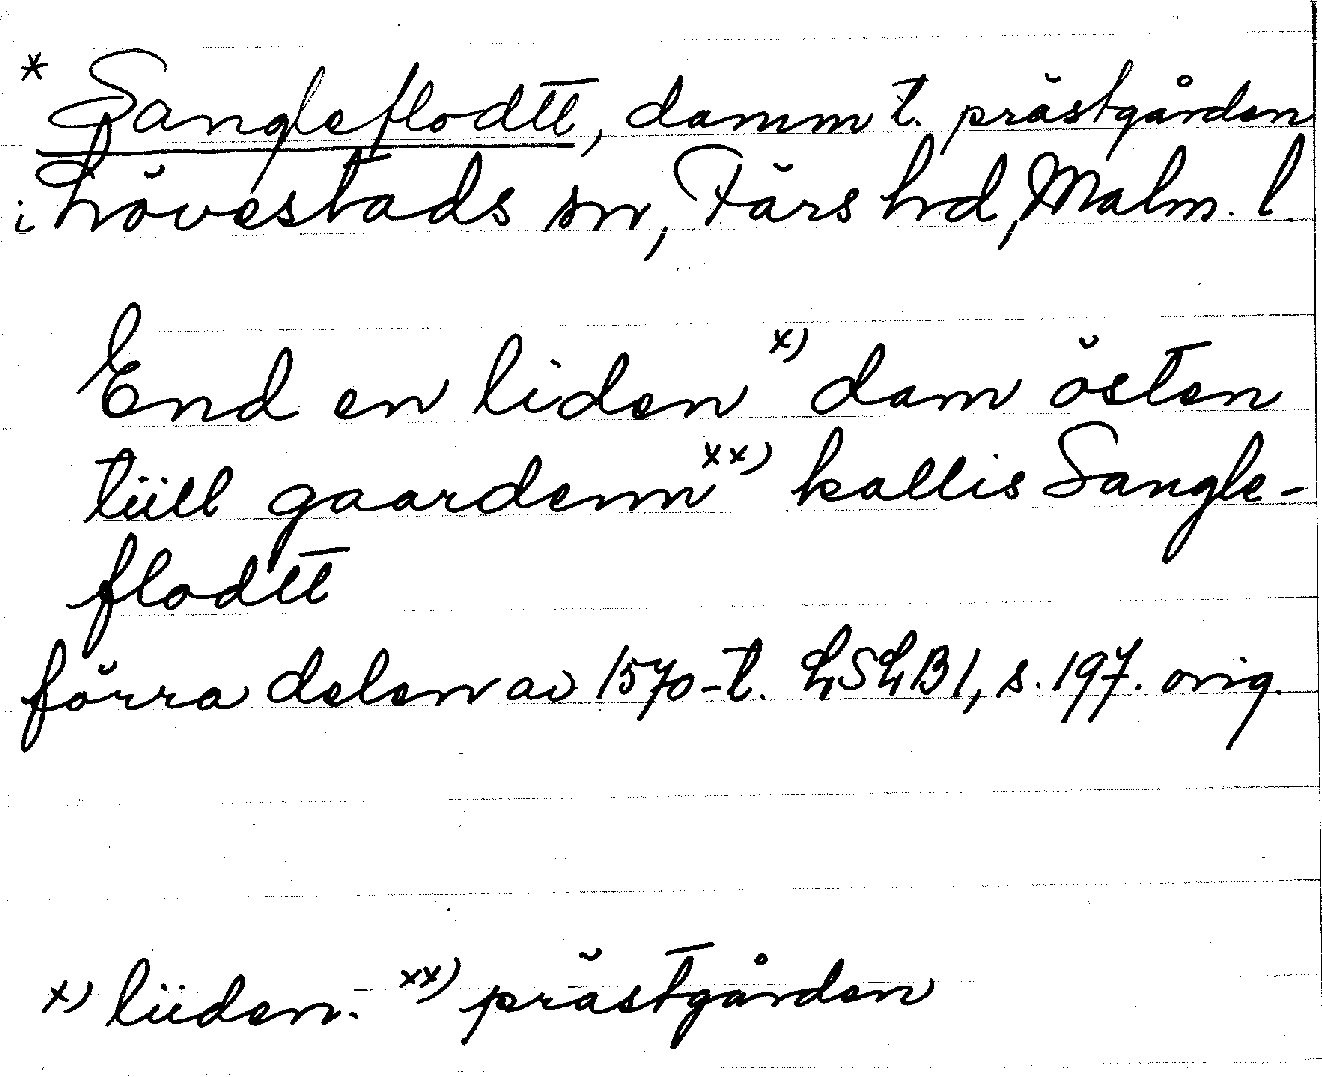 * Sangleflodtt, damm t. prästgården
i Lövestads sn, Färs hd, Malm. l
End en liden x) dam östen
tiill gaardenn xx) kallis Sangle-
flodtt
förra delen av 1570-t. LSLB1, s. 197. orig.
x) liiden. xx) prästgården